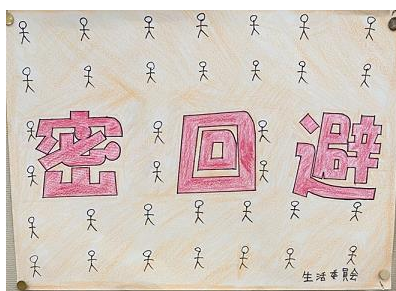 密回避
生活委員会